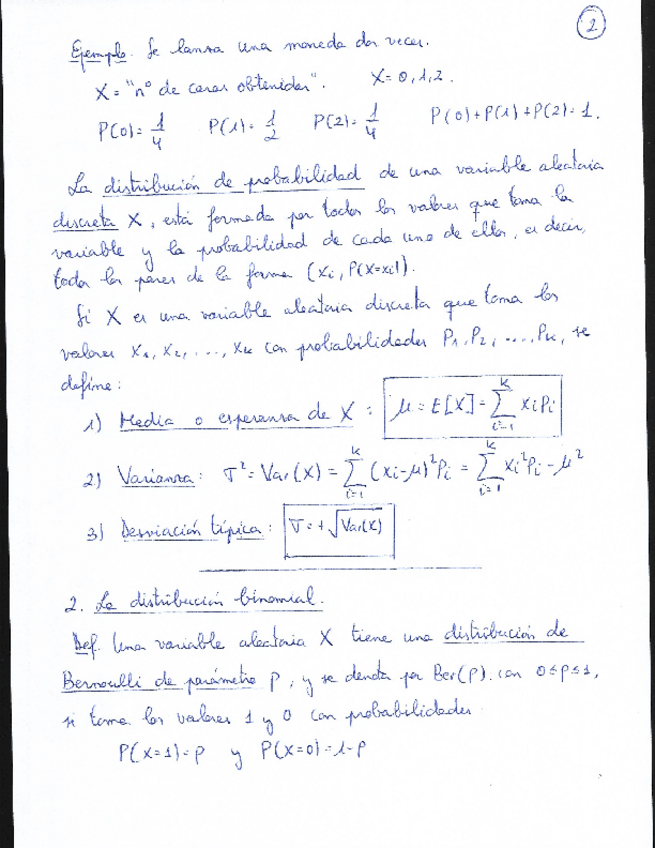 2
Ejemplo. Se lanza una moneda dos veces.
X = "nº de caras obtenidas". X = 0, 1, 2.
P(0) = 1/4 P(1) = 1/2 P(2) = 1/4 P(0) + P(1) + P(2) = 1.
La distribución de probabilidad de una variable aleatoria
discreta X, está formada por todos los valores que toma la
variable y la probabilidad de cada uno de ellos, es decir,
todos los pares de la forma (xi, P(X=xi)).
Si X es una variable aleatoria discreta que toma los
valores x₁, x₂, ..., xk con probabilidades P₁, P₂, ..., Pk, se
define:
1) Media o esperanza de X : μ = E[X] = ∑_{i=1}^{k} xi Pi
2) Varianza : σ² = Var(X) = ∑_{i=1}^{k} (xi - μ)² Pi = ∑_{i=1}^{k} xi² Pi - μ²
3) Desviación típica : σ = + √Var(X)
2. La distribución binomial.
Def. Una variable aleatoria X tiene una distribución de
Bernoulli de parámetro p, y se denota por Ber(p). con 0 ≤ p ≤ 1,
si toma los valores 1 y 0 con probabilidades
P(X=1) = p y P(X=0) = 1-p